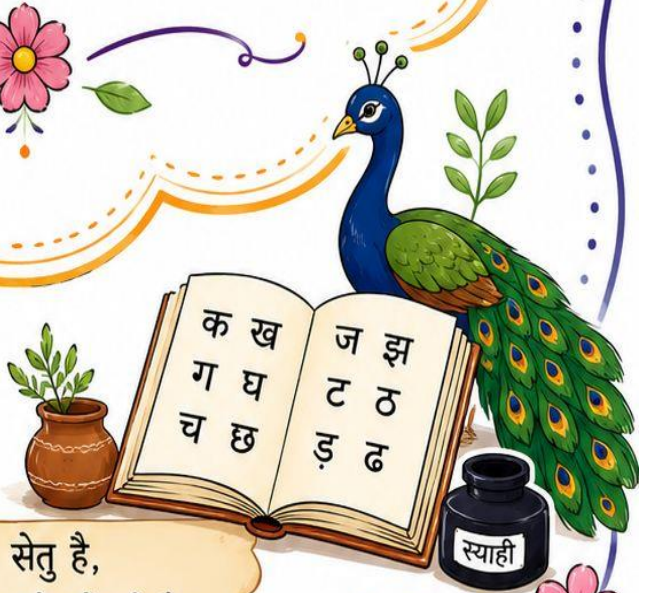 क ख
ग घ
च छ
ज झ
ट ठ
ड़ ढ
स्याही
सेतु है,